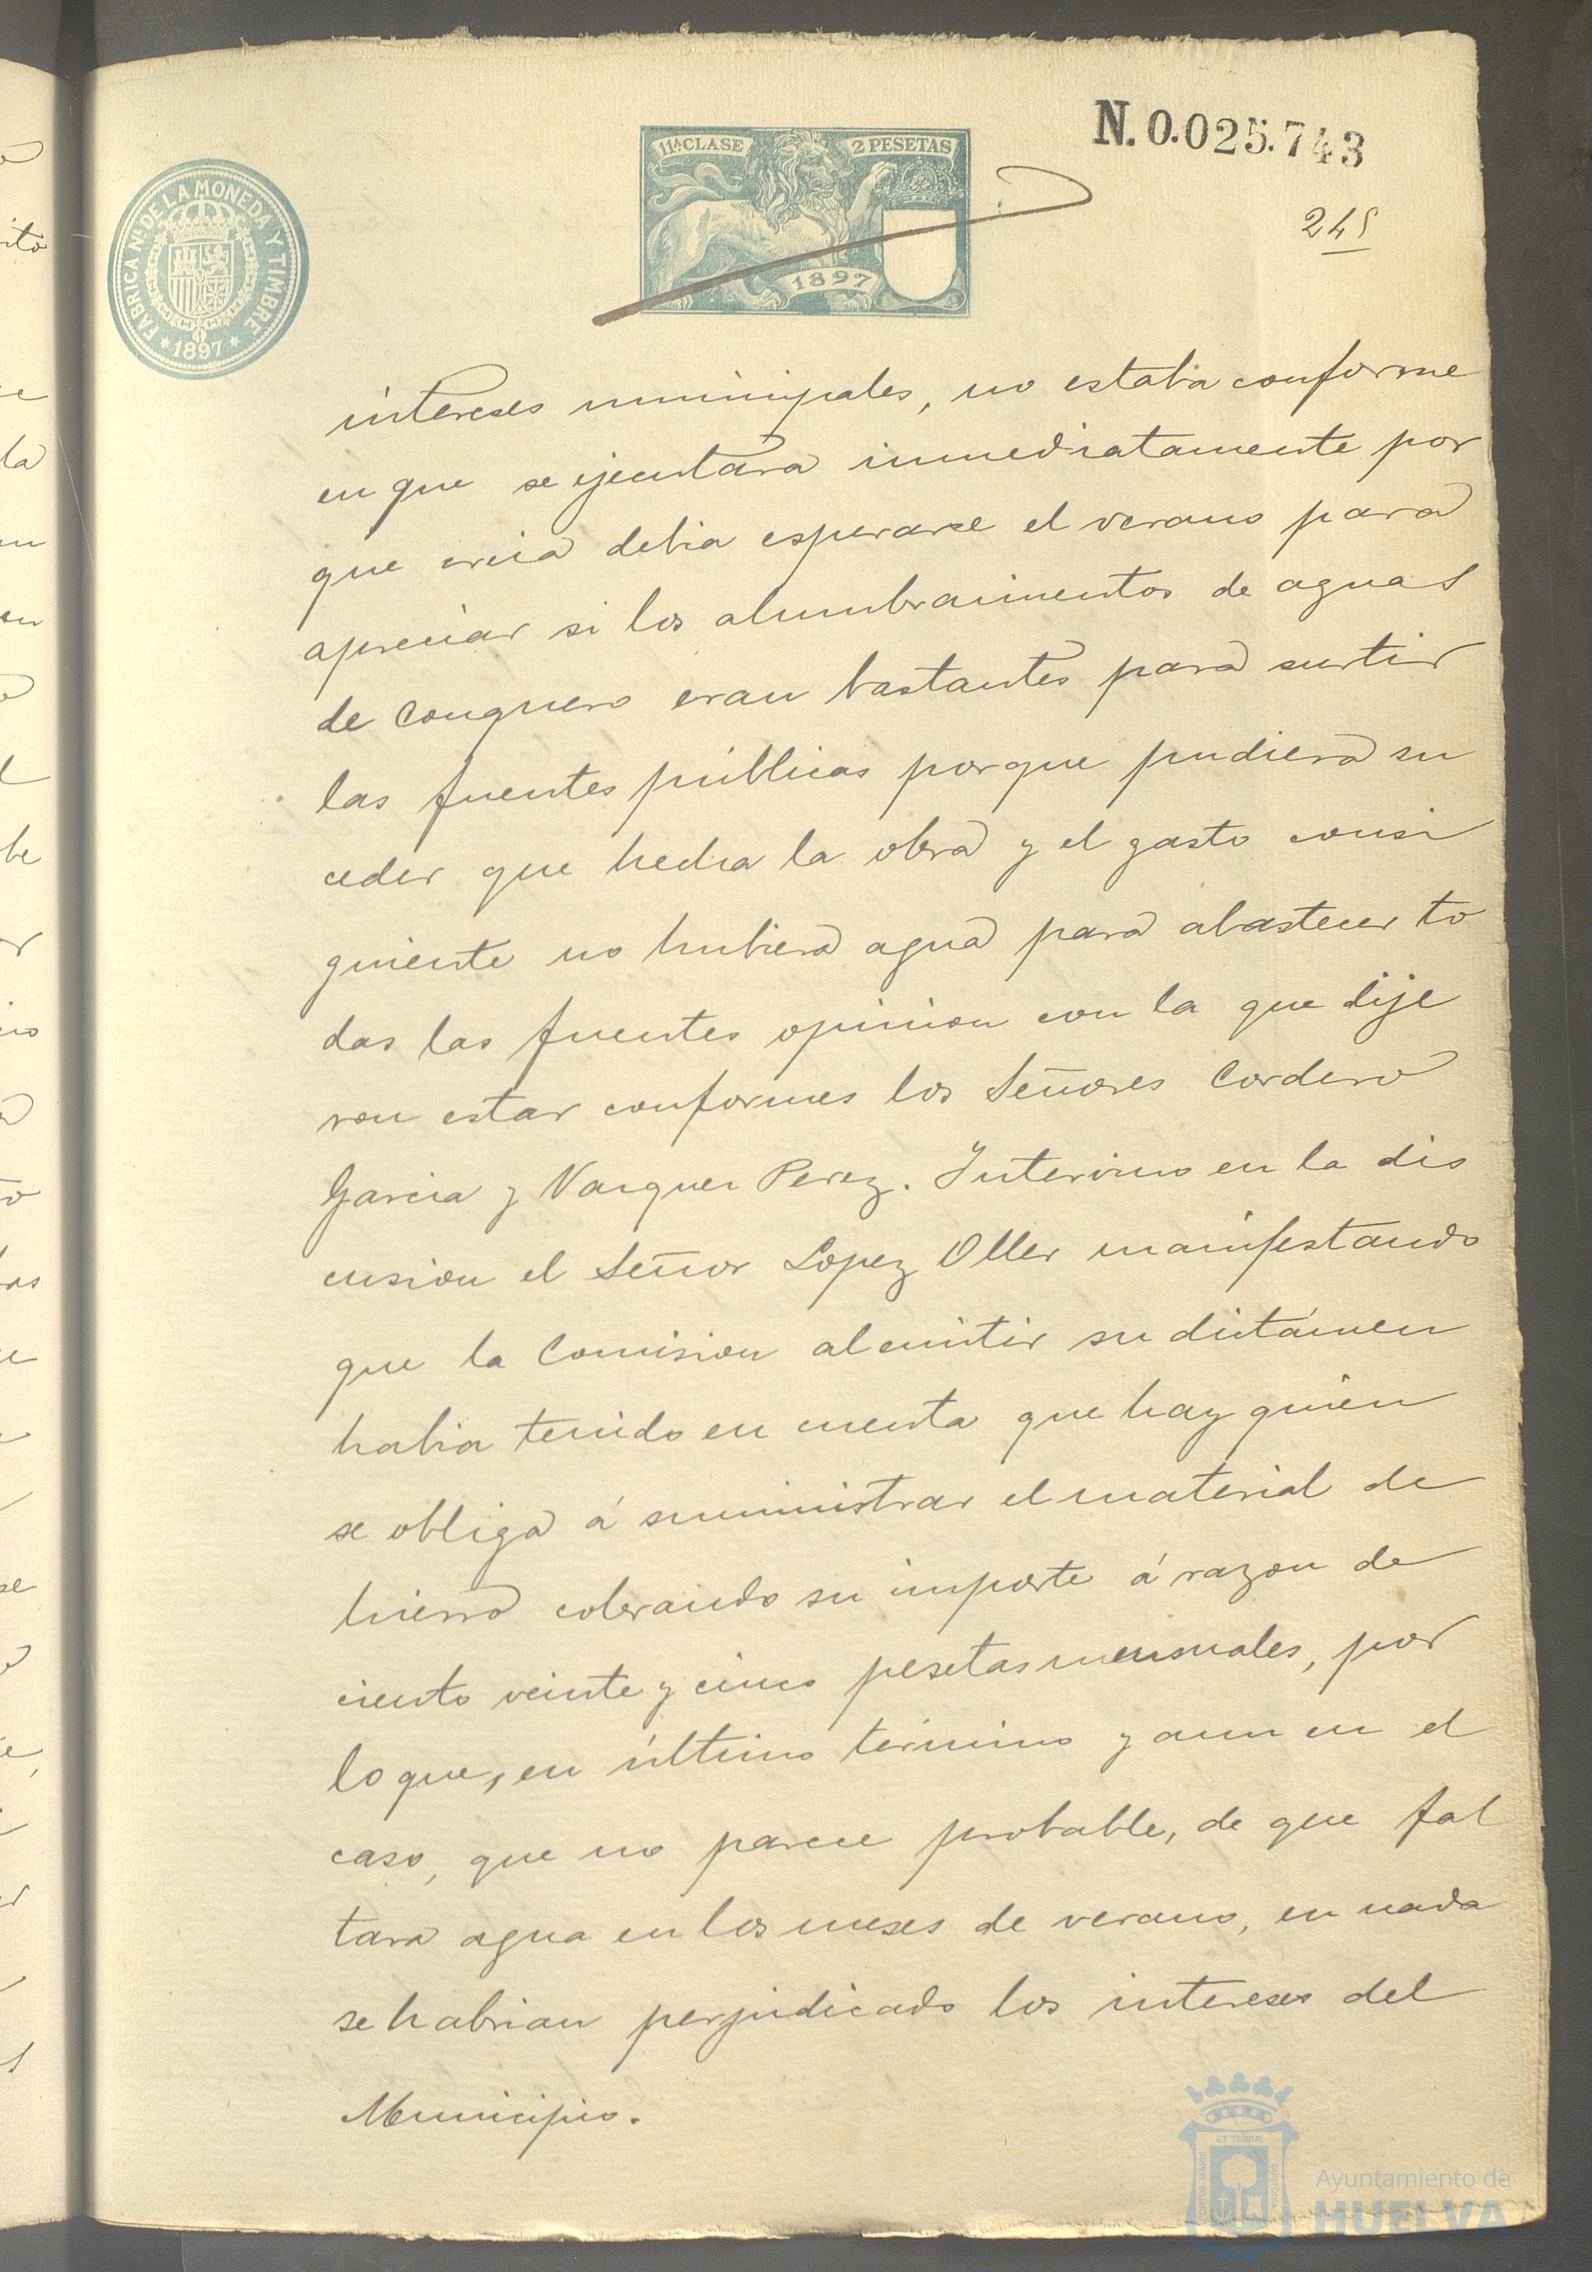 N. 0.025.743
11ª CLASE
2 PESETAS
1897
FABRICA Nal DE LA MONEDA Y TIMBRE
* 1897 *
245
intereses municipales, no estaba conforme
en que se ejecutara inmediatamente por
que creia debia esperarse el verano para
apreciar si los alumbraimentos de aguas
de Conquero eran bastantes para surtir
las fuentes públicas porque pudiera su
ceder que hecha la obra y el gasto consi
guiente no hubiera agua para abastecer to
das las fuentes opinion con la que dije
ron estar conformes los Señores Cordero
Garcia y Vazquez Perez. Intervino en la dis
cusion el Señor Lopez Oller manifestando
que la Comision al emitir su dictámen
habia tenido en cuenta que hay quien
se obliga á suministrar el material de
hierro cobrando su importe á razon de
ciento veinte y cinco pesetas mensuales, por
lo que, en último término y aun en el
caso, que no parece probable, de que fal
tara agua en los meses de verano, en nada
se habrian perjudicado los intereses del
Municipio.
Ayuntamiento de
HUELVA